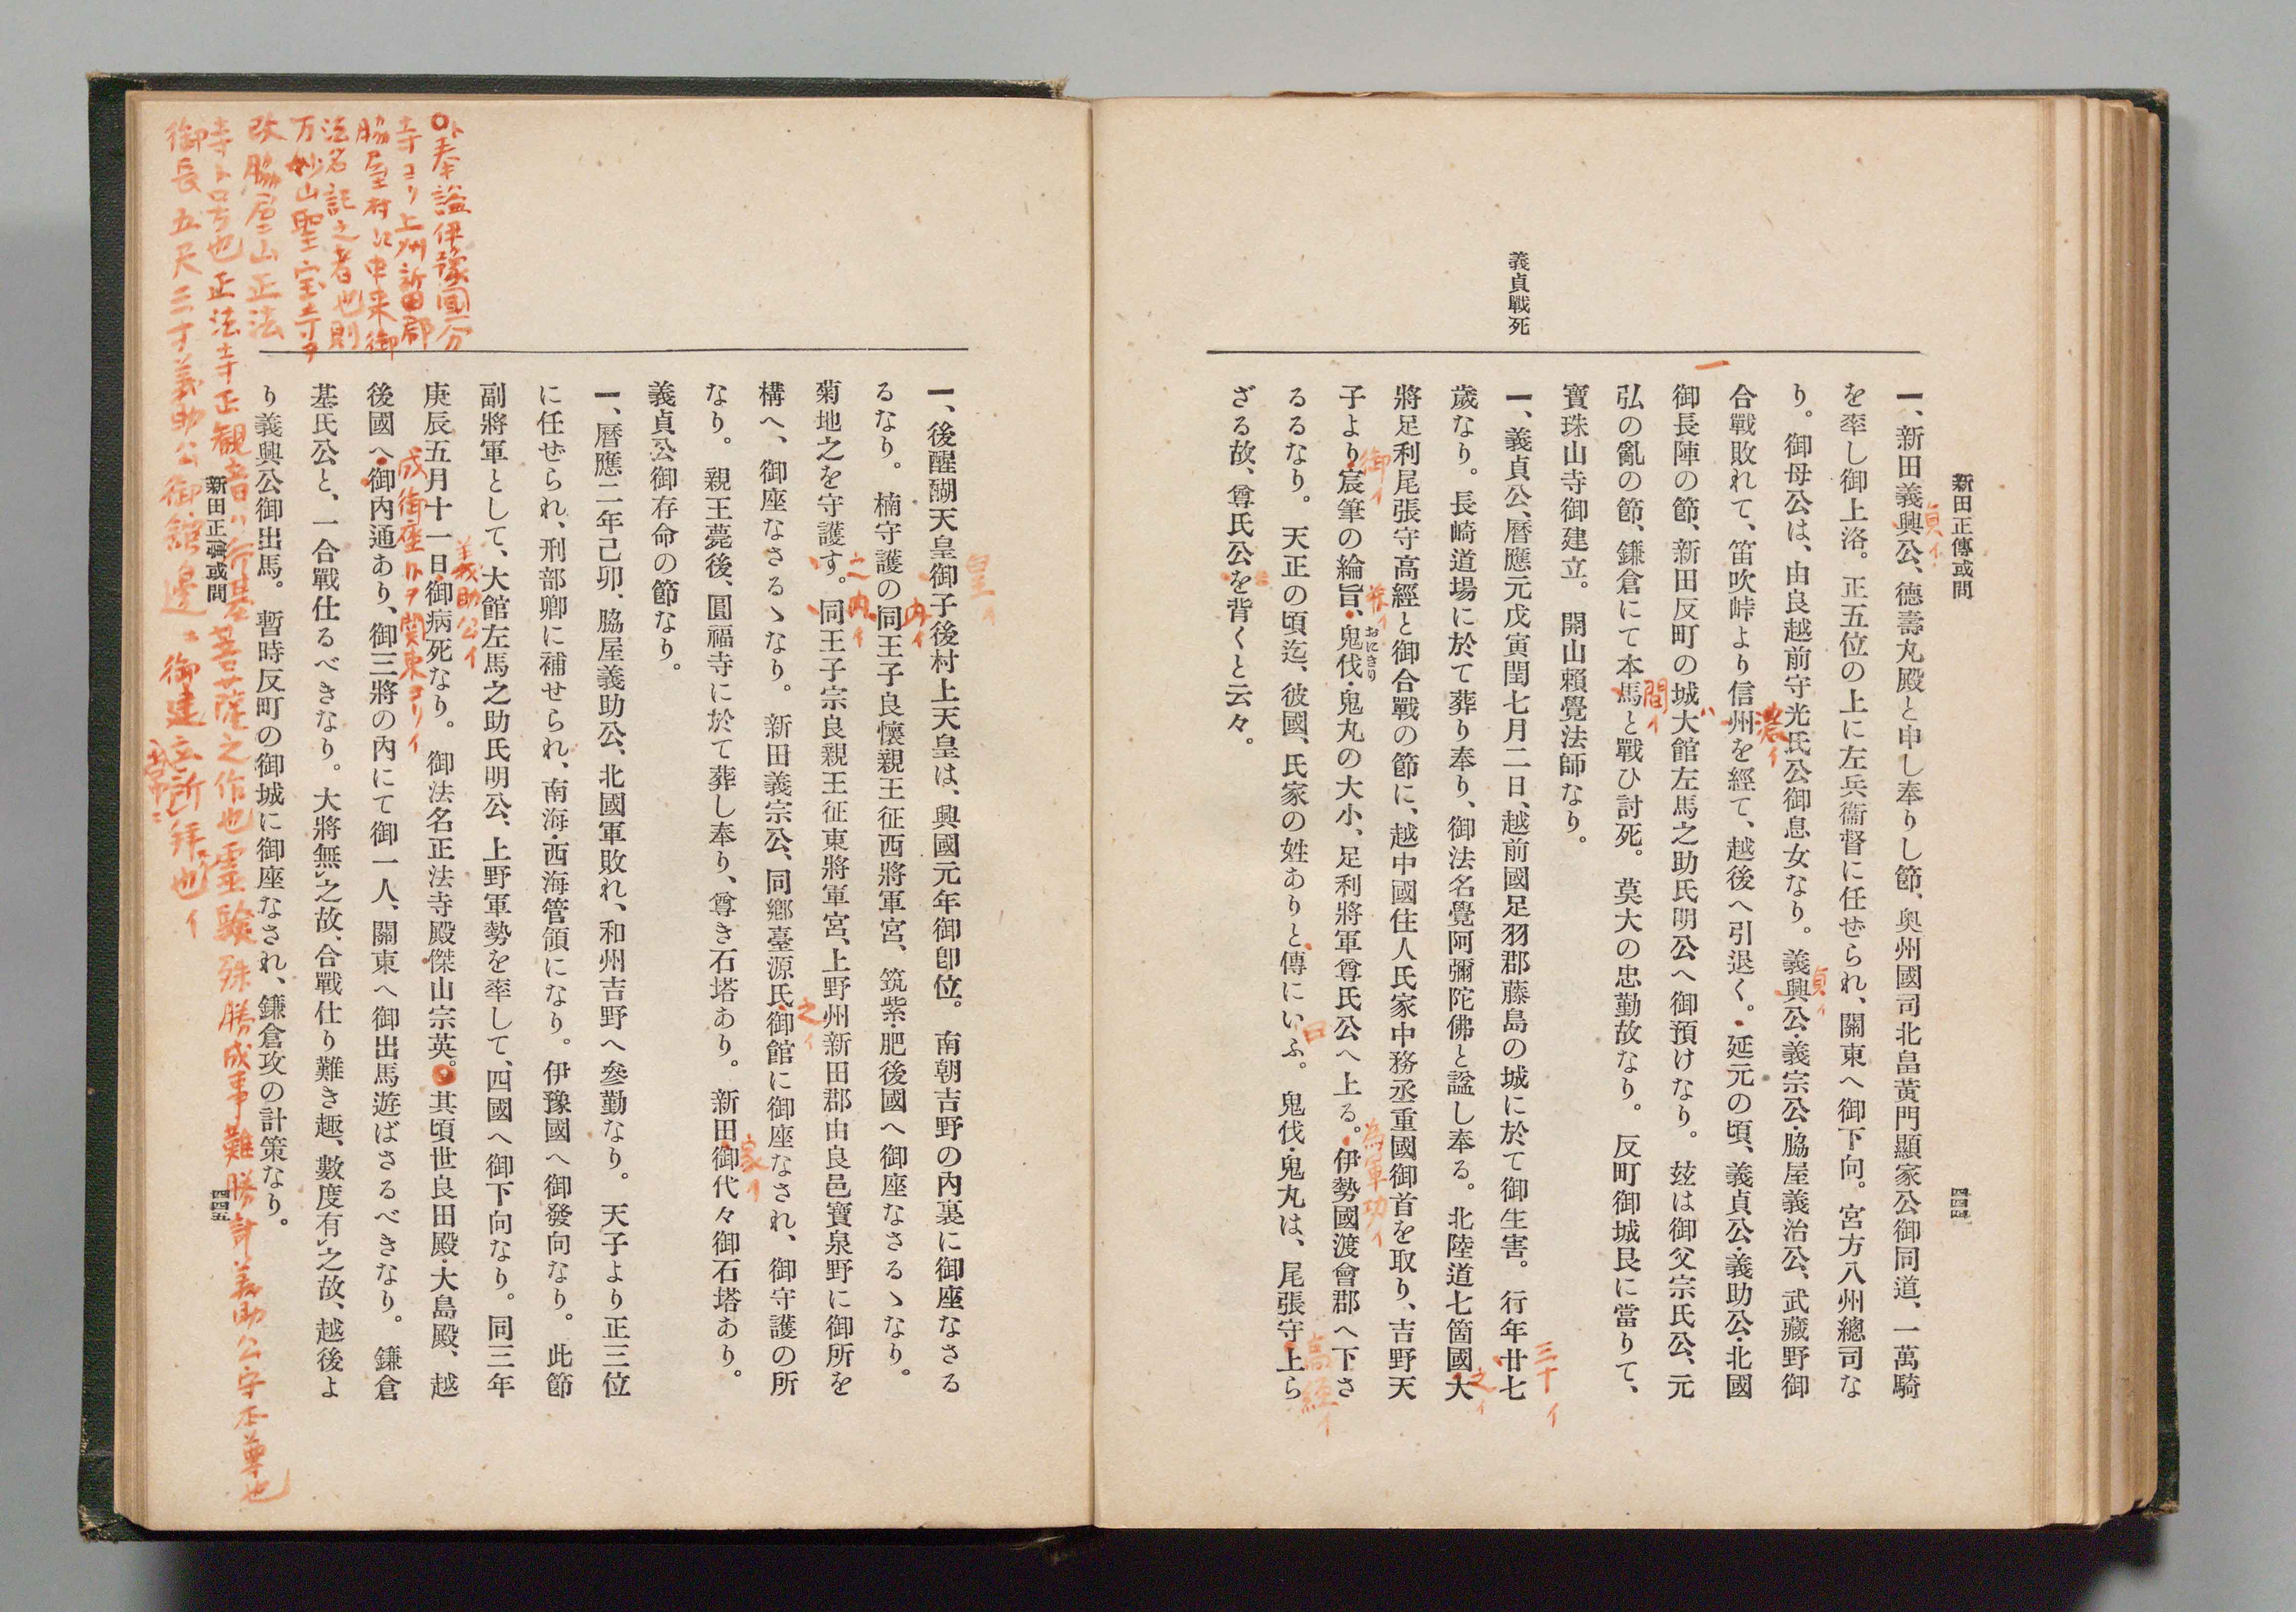 新田正傳或問
四四四
義貞戰死
一、新田義興公、德壽丸殿と申し奉りし節、奧州國司北畠黃門顯家公御同道、一萬騎
貞イ
を率し御上洛。正五位の上に左兵衞督に任ぜられ、關東へ御下向。宮方八州總司な
り。御母公は、由良越前守光氏公御息女なり。義興公・義宗公・脇屋義治公、武藏野御
貞イ
合戰敗れて、笛吹峠より信州を經て、越後へ引退く。・延元の頃、義貞公・義助公・北國
濃イ
御長陣の節、新田反町の城大館左馬之助氏明公へ御預けなり。玆は御父宗氏公、元
ハ
弘の亂の節、鎌倉にて本馬と戰ひ討死。莫大の忠勤故なり。反町御城艮に當りて、
間イ
寶珠山寺御建立。開山賴覺法師なり。
一、義貞公、曆應元戊寅閏七月二日、越前國足羽郡藤島の城に於て御生害。行年廿七
三十イ
歲なり。長崎道場に於て葬り奉り、御法名覺阿彌陀佛と諡し奉る。北陸道七箇國大
之イ
將足利尾張守高經と御合戰の節に、越中國住人氏家中務丞重國御首を取り、吉野天
子より宸筆の綸旨、鬼伐・鬼丸の大小、足利將軍尊氏公へ上る。伊勢國渡會郡へ下さ
御イ
おにきり
為軍功イ
るるなり。天正の頃迄、彼國、氏家の姓ありと傳にいふ。鬼伐・鬼丸は、尾張守上ら
曰
高經イ
ざる故、尊氏公を背くと云々。
一、後醍醐天皇御子後村上天皇は、興國元年御卽位。南朝吉野の內裏に御座なさる
皇イ
るなり。楠守護の同王子良懷親王征西將軍宮、筑紫・肥後國へ御座なさるゝなり。
內イ
菊地之を守護す。同王子宗良親王征東將軍宮、上野州新田郡由良邑寶泉野に御所を
之內イ
構へ、御座なさるゝなり。新田義宗公、同鄕臺源氏御館に御座なされ、御守護の所
之イ
なり。親王薨後、圓福寺に於て葬し奉り、尊き石塔あり。新田御代々御石塔あり。
家イ
義貞公御存命の節なり。
一、曆應二年己卯、脇屋義助公、北國軍敗れ、和州吉野へ參勤なり。天子より正三位
に任ぜられ、刑部卿に補せられ、南海・西海管領になり。伊豫國へ御發向なり。此節
副將軍として、大館左馬之助氏明公、上野軍勢を率して、四國へ御下向なり。同三年
庚辰五月十一日御病死なり。御法名正法寺殿傑山宗英。其頃世良田殿・大島殿、越
義助公イ
後國へ御內通あり、御三將の內にて御一人、關東へ御出馬遊ばさるべきなり。鎌倉
成御座トヲ関東ヨリイ
基氏公と、一合戰仕るべきなり。大將無レ之故、合戰仕り難き趣、數度有レ之故、越後よ
り義興公御出馬。暫時反町の御城に御座なされ、鎌倉攻の計策なり。
ト奉諡伊豫国分
寺ヨリ上州新田郡
脇屋村江申来御
法名記之者也則
万妙山聖宝寺ヲ
改脇屋山正法
寺ト号也正法寺正観音ハ行基菩薩之作也霊験殊勝成事難勝計義助公守本尊也
御長五尺三寸義助公御舘邊ニ御建立所拜也イ
常ニ
新田正傳或問
四四五